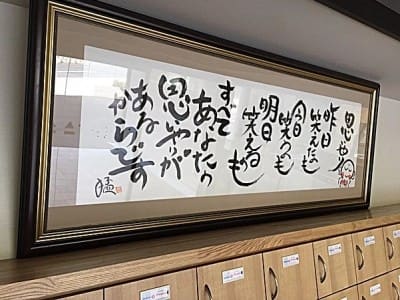 思いやり
昨日
笑えたのも
今日
笑うのも
明日
笑えるのも
すべて
あなたの
思いやりが
ある
からです
猛